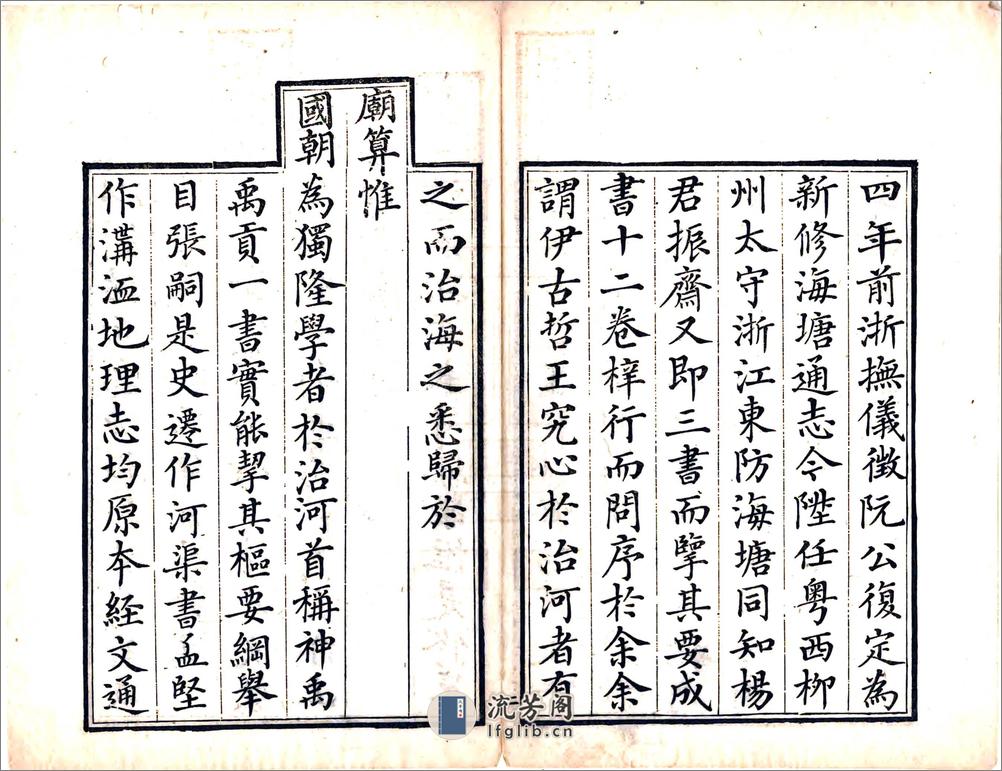 四年前浙撫儀徵阮公復定為
新修海塘通志今陞任粤西柳
州太守浙江東防海塘同知楊
君振齋又即三書而擥其要成
書十二卷梓行而問序於余余
謂伊古哲王究心於治河者有
之而治海之悉歸於
廟算惟
國朝為獨隆學者於治河首稱神禹
禹貢一書實能挈其樞要綱舉
目張嗣是史遷作河渠書孟堅
作溝洫地理志均原本經文通
流芳阁
lfglib.cn